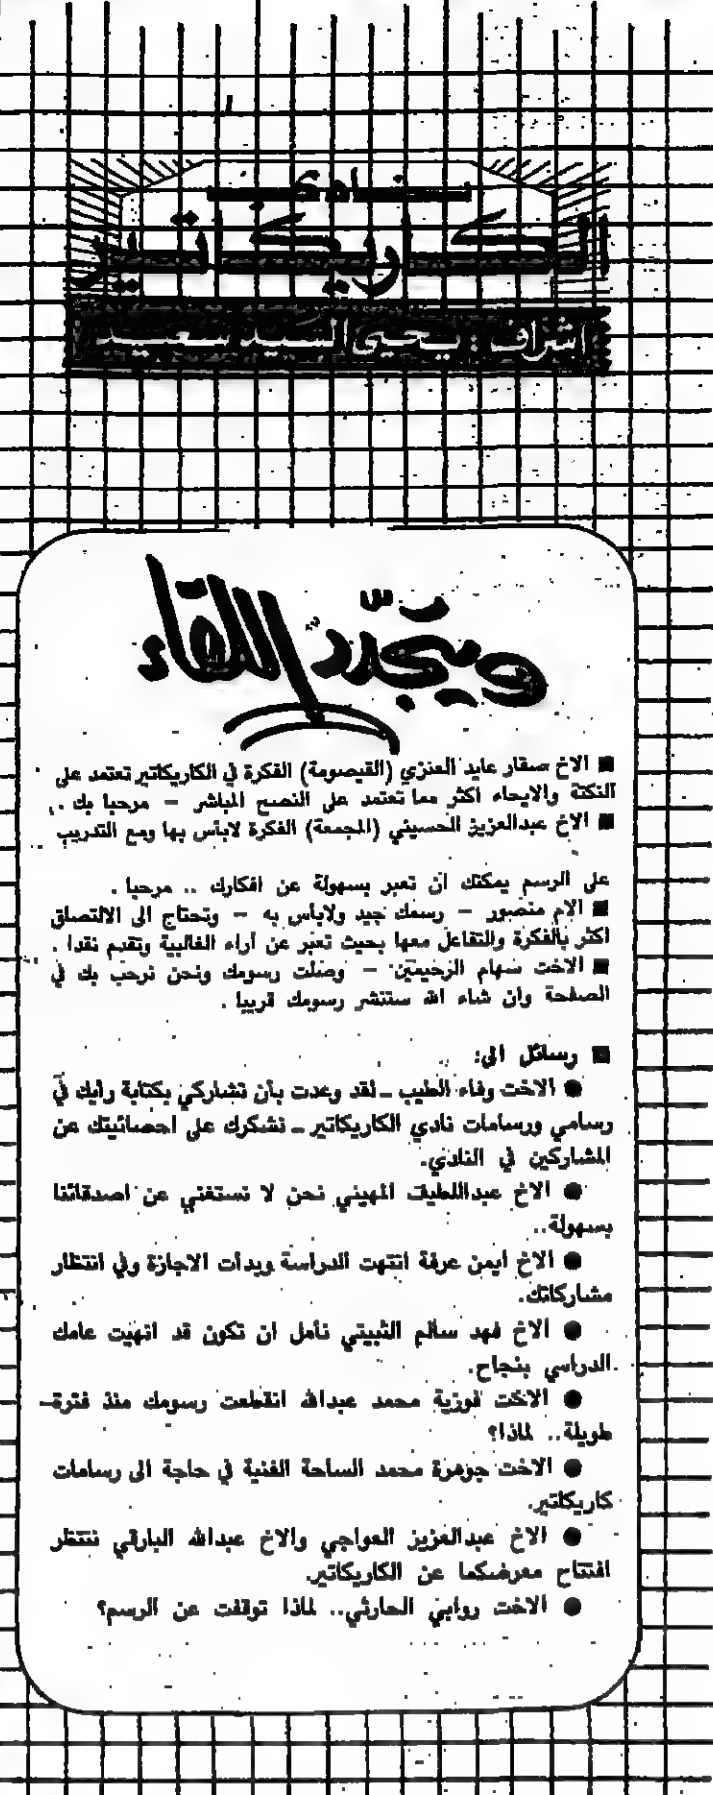 نادي
الكاريكاتير
اشراف : يحيى السيد سعيد
ويتجدد اللقاء
■ الاخ صقار عايد العنزي (القيصومة) الفكرة في الكاريكاتير تعتمد على
النكتة والايحاء اكثر مما تعتمد على النصح المباشر - مرحبا بك .
■ الاخ عبدالعزيز الحسيني (المجمعة) الفكرة لابأس بها ومع التدريب
على الرسم يمكنك ان تعبر بسهولة عن افكارك .. مرحبا .
■ الام منصور - رسمك جيد ولابأس به - وتحتاج الى الالتصاق
اكثر بالفكرة والتفاعل معها بحيث تعبر عن آراء الغالبية وتقدم نقدا .
■ الاخت سهام الرحيمين - وصلت رسومك ونحن نرحب بك في
الصفحة وان شاء الله ستنشر رسومك قريبا .
■ رسائل الى:
● الاخت وفاء الطيب ـ لقد وعدت بأن تشاركي بكتابة رأيك في
رسامي ورسامات نادي الكاريكاتير ـ نشكرك على احصائيتك عن
المشاركين في النادي.
● الاخ عبداللطيف المهيني نحن لا نستغني عن اصدقائنا
بسهولة..
● الاخ ايمن عرفة انتهت الدراسة وبدأت الاجازة وفي انتظار
مشاركاتك.
● الاخ فهد سالم الثبيتي نأمل ان تكون قد انهيت عامك
الدراسي بنجاح.
● الاخت فوزية محمد عبدالله انقطعت رسومك منذ فترة
طويلة.. لماذا؟
● الاخت جوهرة محمد الساحة الفنية في حاجة الى رسامات
كاريكاتير.
● الاخ عبدالعزيز العواجي والاخ عبدالله البارقي ننتظر
افتتاح معرضكما عن الكاريكاتير.
● الاخت روابي الحارثي.. لماذا توقفت عن الرسم؟